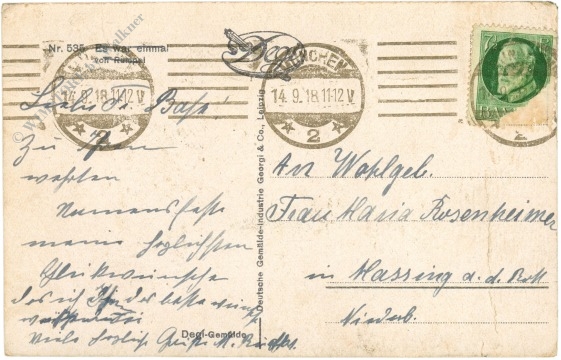 Nr. 535 Es war einmal
von Rumpel
Degi
MÜNCHEN
14.9.18.11-12 V
2
14.9.18.11-12 V
2
Liebe Fr. Base!
Zu Ihrem
werten
Namensfeste
meine herzlichsten
Glückwünsche
viele herzliche Grüße
Degi-Gemälde
Deutsche Gemälde-Industrie Georgi & Co., Leipzig
An Wohlgeb.
Frau Maria Rosenheimer
in Massing a. d. Rott
Niederb.